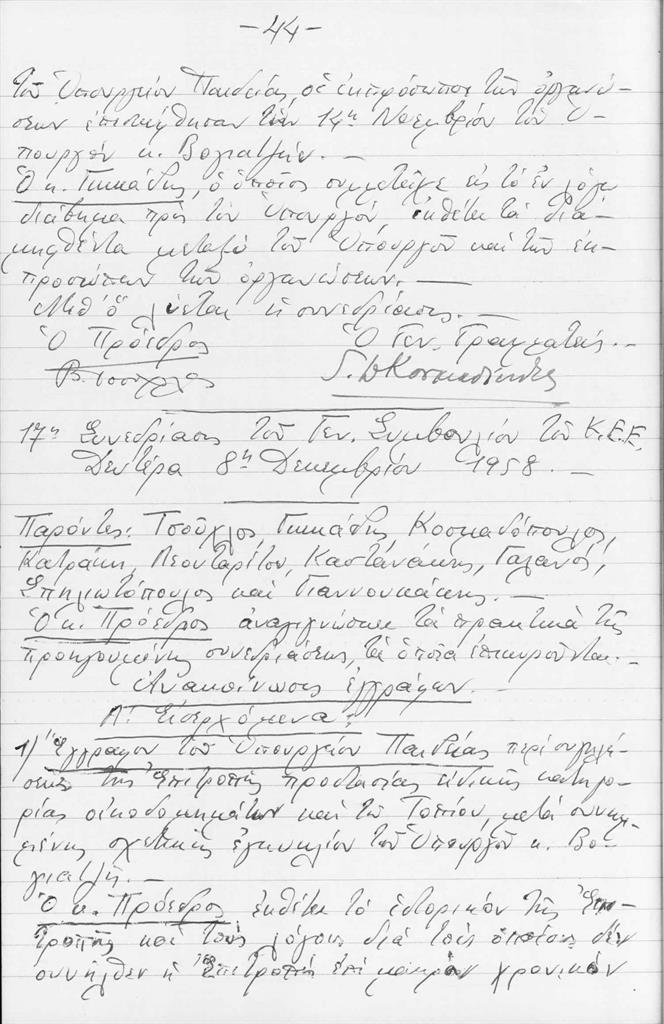 -44-
τοῦ Ὑπουργείου Παιδείας, οἱ ἐκπρόσωποι τῶν ὀργανώ-
σεων ἐπεσκέφθησαν τὴν 14ην Νοεμβρίου τὸν Ὑ-
πουργὸν κ. Βογιατζῆν. —
Ὁ κ. Γκικάδης, ὁ ὁποῖος συμμετεῖχε εἰς τὸ ἐν λόγῳ
διάβημα πρὸς τὸν Ὑπουργὸν, ἐκθέτει τὰ δια-
μειφθέντα μεταξὺ τοῦ Ὑπουργοῦ καὶ τῶν ἐκ-
προσώπων τῶν ὀργανώσεων. —
Μεθ' ὃ λύεται ἡ συνεδρίασις. —
Ὁ Πρόεδρος Ὁ Γεν. Γραμματεύς. —
Β. Τσοῦχλος
17η Συνεδρίασις τοῦ Γεν. Συμβουλίου τοῦ Κ.Ε.Ε.
Δευτέρα 8η Δεκεμβρίου 1958. —
Παρόντες: Τσοῦχλος, Γκικάδης, Κοσμαδόπουλος,
Κατράκη, Λεονταρίτου, Καστανάκης, Γαλανός,
Σπηλιωτόπουλος καὶ Γιαννουκάκης. —
Ὁ κ. Πρόεδρος ἀναγιγνώσκει τὰ πρακτικὰ τῆς
προηγουμένης συνεδριάσεως, τὰ ὁποῖα ἐπικυροῦνται. —
Ἀνακοίνωσις ἐγγράφων. —
Α! Εἰσερχόμενα:
1) Ἔγγραφον τοῦ Ὑπουργείου Παιδείας περὶ συγκλή-
σεως τῆς Ἐπιτροπῆς προστασίας εἰδικῆς κατηγο-
ρίας οἰκοδομημάτων καὶ τοῦ Τοπίου, μετὰ συνημ-
μένης σχετικῆς ἐγκυκλίου τοῦ Ὑπουργοῦ κ. Βο-
γιατζῆ. —
Ὁ κ. Πρόεδρος ἐκθέτει τὸ ἱστορικὸν τῆς Ἐπι-
τροπῆς καὶ τοὺς λόγους διὰ τοὺς ὁποίους δὲν
συνῆλθεν ἡ Ἐπιτροπὴ ἐπὶ μακρὸν χρονικὸν